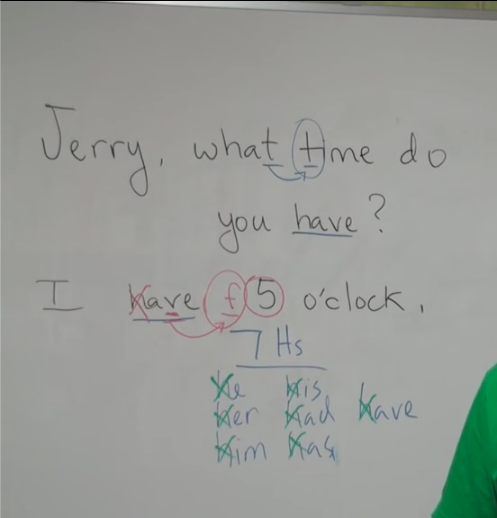 Jerry, what time do
you have?
I have f 5 o'clock.
7 Hs
He his
Her Had Have
Him Has